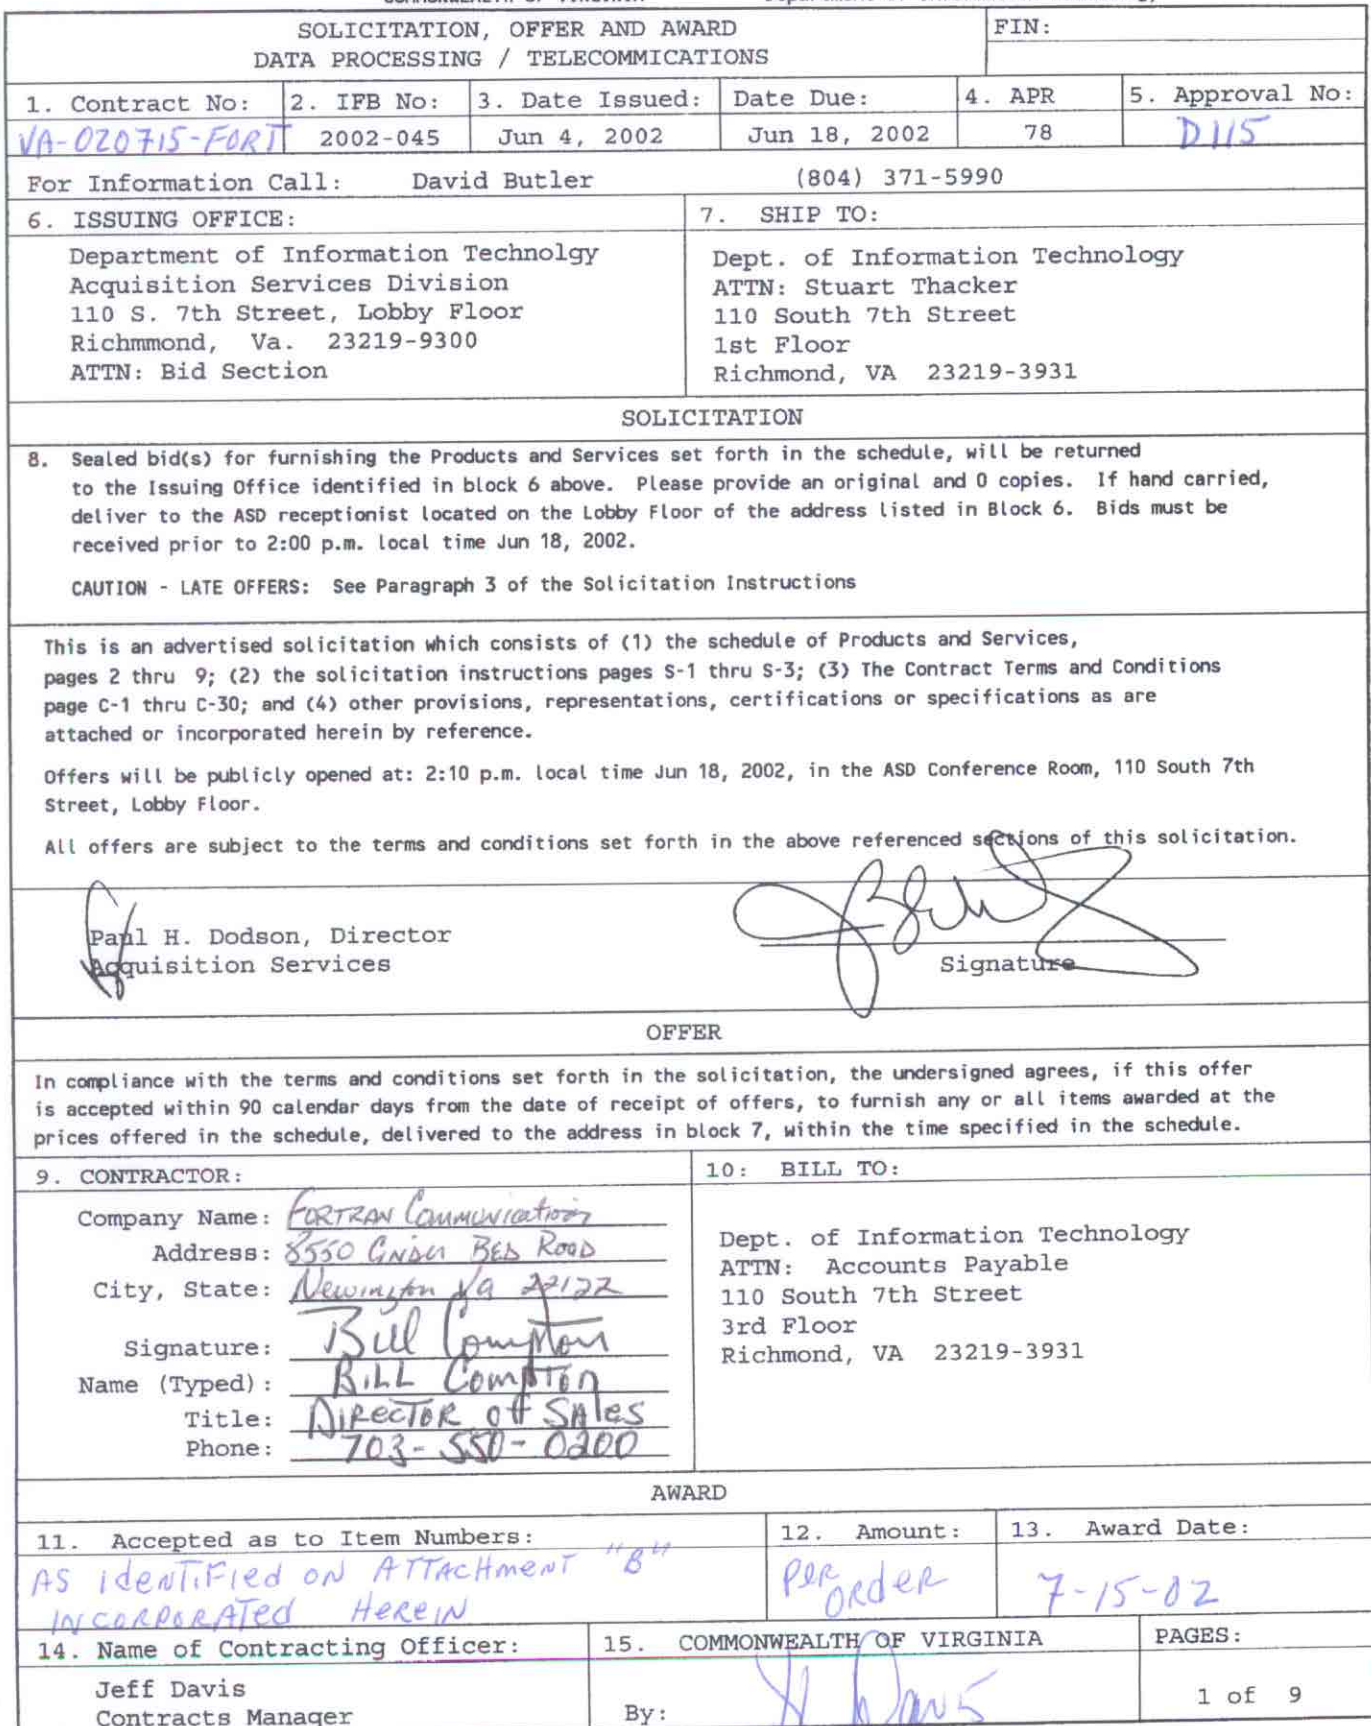 SOLICITATION, OFFER AND AWARD
DATA PROCESSING / TELECOMMICATIONS
FIN:
1. Contract No: 2. IFB No: 3. Date Issued: Date Due: 4. APR 5. Approval No:
VA-020715-FORT 2002-045 Jun 4, 2002 Jun 18, 2002 78 D115
For Information Call: David Butler (804) 371-5990
6. ISSUING OFFICE:
Department of Information Technolgy
Acquisition Services Division
110 S. 7th Street, Lobby Floor
Richmmond, Va. 23219-9300
ATTN: Bid Section
7. SHIP TO:
Dept. of Information Technology
ATTN: Stuart Thacker
110 South 7th Street
1st Floor
Richmond, VA 23219-3931
SOLICITATION
8. Sealed bid(s) for furnishing the Products and Services set forth in the schedule, will be returned
to the Issuing Office identified in block 6 above. Please provide an original and 0 copies. If hand carried,
deliver to the ASD receptionist located on the Lobby Floor of the address listed in Block 6. Bids must be
received prior to 2:00 p.m. local time Jun 18, 2002.
CAUTION - LATE OFFERS: See Paragraph 3 of the Solicitation Instructions
This is an advertised solicitation which consists of (1) the schedule of Products and Services,
pages 2 thru 9; (2) the solicitation instructions pages S-1 thru S-3; (3) The Contract Terms and Conditions
page C-1 thru C-30; and (4) other provisions, representations, certifications or specifications as are
attached or incorporated herein by reference.
Offers will be publicly opened at: 2:10 p.m. local time Jun 18, 2002, in the ASD Conference Room, 110 South 7th
Street, Lobby Floor.
All offers are subject to the terms and conditions set forth in the above referenced sections of this solicitation.
Paul H. Dodson, Director
Acquisition Services
Signature
OFFER
In compliance with the terms and conditions set forth in the solicitation, the undersigned agrees, if this offer
is accepted within 90 calendar days from the date of receipt of offers, to furnish any or all items awarded at the
prices offered in the schedule, delivered to the address in block 7, within the time specified in the schedule.
9. CONTRACTOR:
Company Name: FORTRAN Communications
Address: 8550 BED ROAD
City, State: Newington Va 22122
Signature: Bill Compton
Name (Typed): BILL Compton
Title: DIRECTOR of SAles
Phone: 703-550-0200
10: BILL TO:
Dept. of Information Technology
ATTN: Accounts Payable
110 South 7th Street
3rd Floor
Richmond, VA 23219-3931
AWARD
11. Accepted as to Item Numbers:
AS identified on ATTACHment "B"
INCORPORATed HereIN
12. Amount:
per order
13. Award Date:
7-15-02
14. Name of Contracting Officer:
Jeff Davis
Contracts Manager
15. COMMONWEALTH OF VIRGINIA
By: Davis
PAGES:
1 of 9